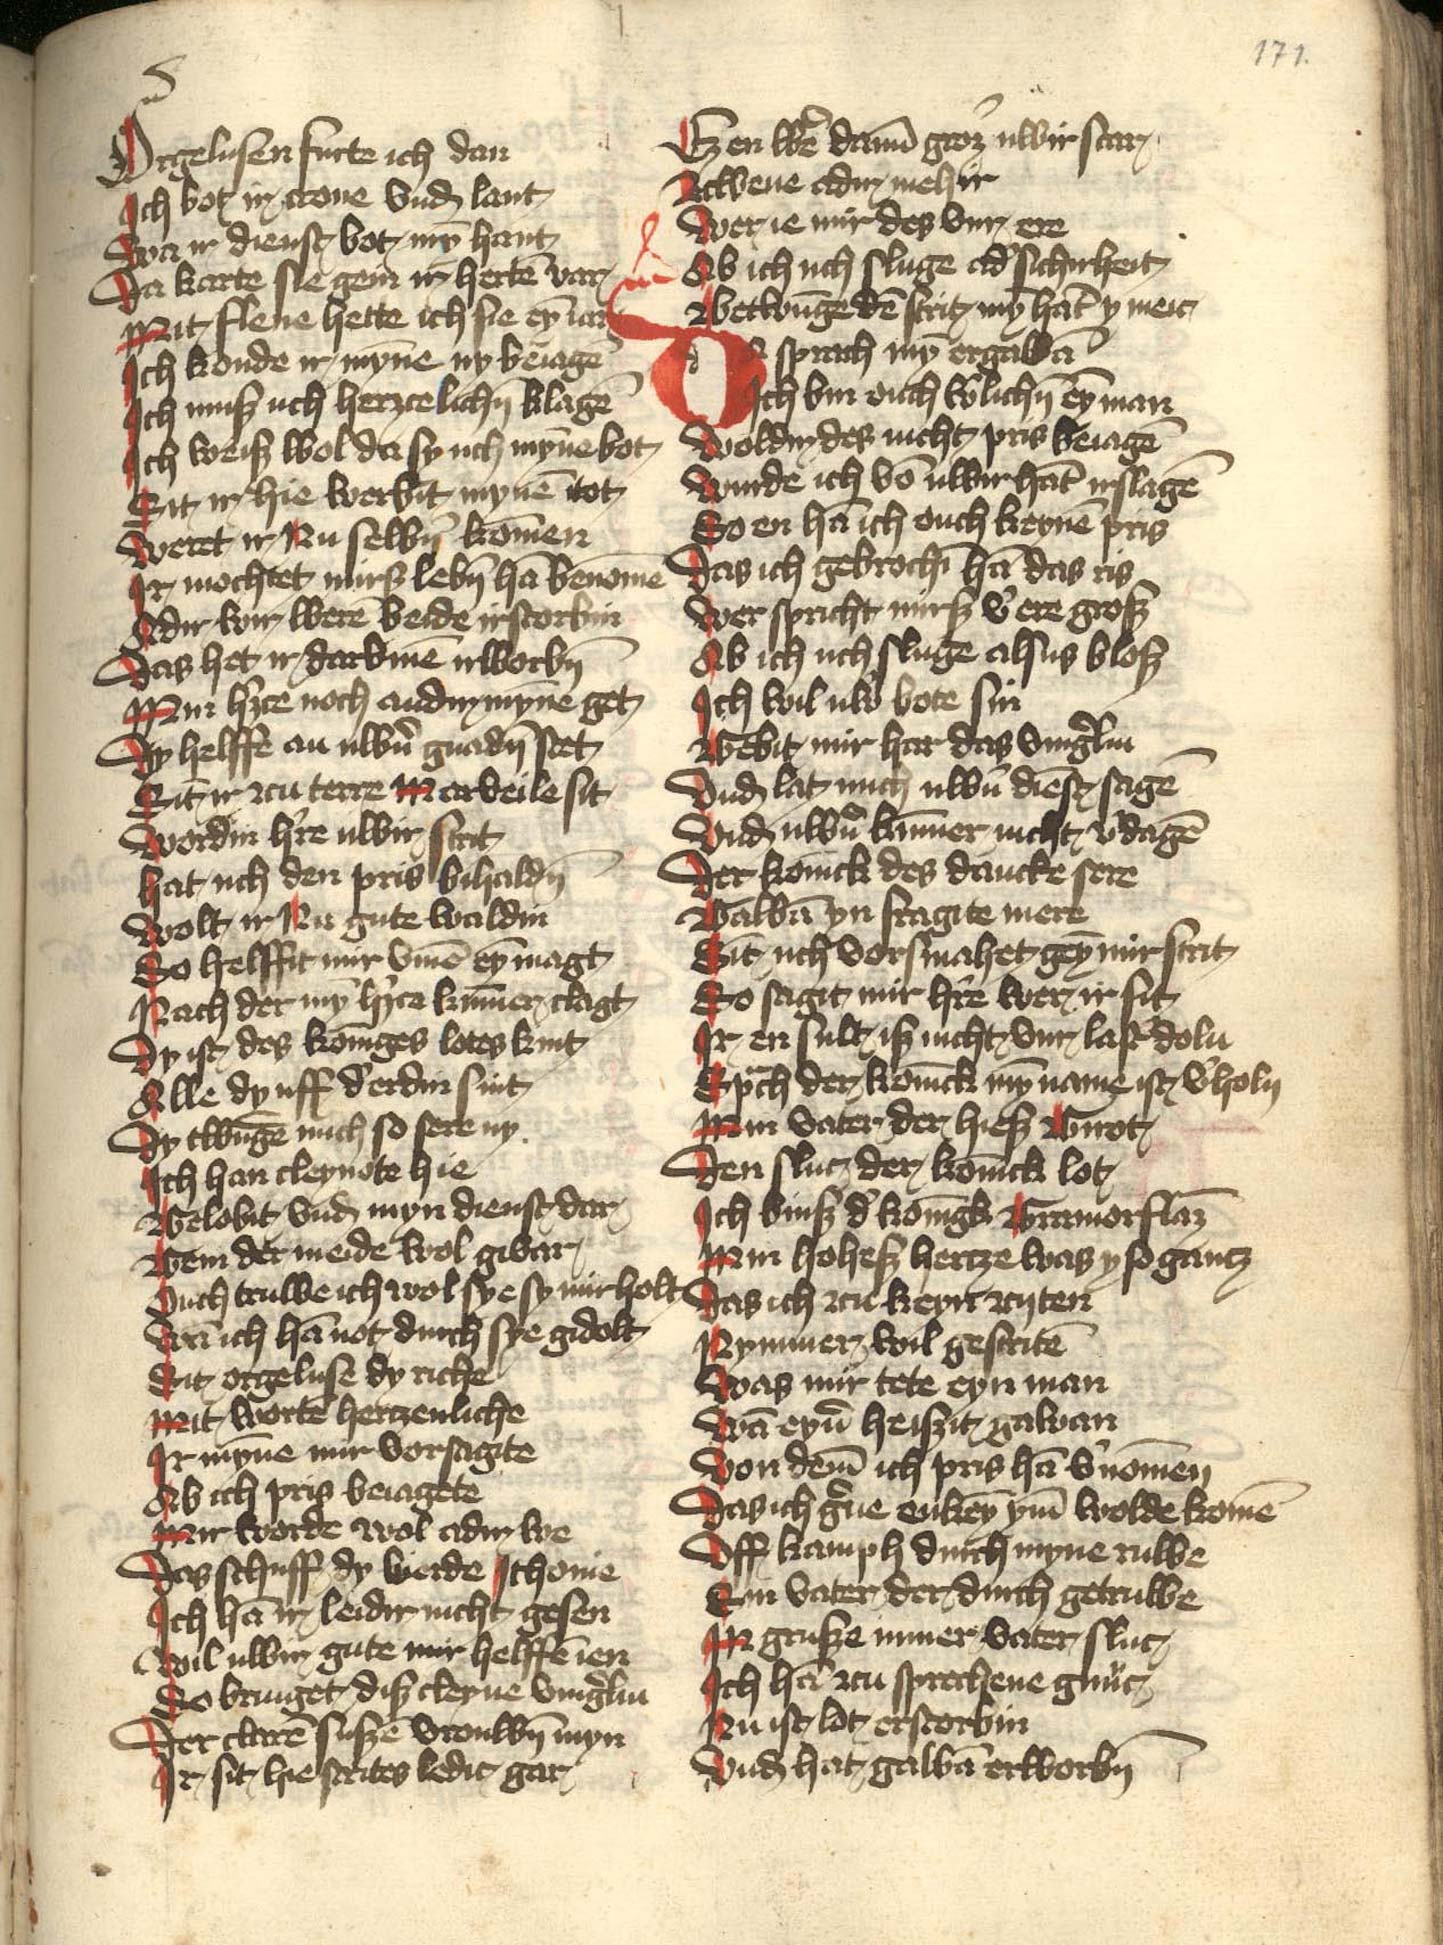 171.
Orgelusen furte ich dan
Ich bot ir crone vnd lant
Wa ir dienst bot myn hant
Da karte sie gein ir herten var
Mit flene hette ich sie eyn iar
Ich konde ir mynne ny beiagen
Ich musz uch hertzelichn klagen
Ich weisz wol da sy uch mynne bot
Sit ir hie werbit mynen tot
Weret ir Nu selbir komen
Ir mochtet mirsz lebn han benomen
Adir wir weren beide irstorbin
Das het ir darvmen irworbn
Min hrce noch andir mynne get
Dy helffe an uwir gnadn stet
Sit ir zcu terre Marveile sit
Wordin hre uwir strit
hat uch den pris bihaldn
Wolt ir Nu gute waldin
So helffit mir vmen eyn magt
Nach der myn hrce kummer clagt
Dy ist des koninges lotes kint
Alle dy uff der erdin sint
Dy twungen mich so sere ny
Ich han cleynote hie
Gelobit vnd myn dienst dar
Gein der meide wol givar
Ouch truwe ich wol sye sy mir holt
Wan ich han not durch sye gidolt
Sit orgeluse dy riche
Mit worten hertzenliche
Ir mynne mir vorsagite
Ab ich pris beiagete
Mir worde wol adir we
Das schuff dy werde Ithonie
Ich han ir leidir nicht gesen
Wil uwir gute mir helffen ien
So bringet disz cleyne vingirlin
Der claren suszen vrouwn myn
Ir sit hie strites ledic gar
Ez en were dann groz uwir scar
Zcwene adir mehir
Wer ie mir des vur ere
Ab ich uch sluge adir sichirheit
Getwunge den strit myn hant y meit
Da sprach myn er gawan
Ich bin ouch werlichn eyn man
Woldir des nicht pris beiagen
Wurde ich von uwir hant irslagen
So en han ich ouch keynen pris
Das ich gebrochin han das ris
Wer spricht mirsz vor ere grosz
Ab ich uch sluge alsus blosz
Ich wil uwir bote sin
Gebit mir har das vingirlin
Vnd lat mich uwirn dienst sagen
Vnd uwirn kummer nicht vordagen
Der konick des dancke sere
Gawan yn fragite mere
Sit uch vorsmahet gein mir strit
So sagit mir hre wer ir sit
Ir en sult isz nicht vur laster doln
Sprach der konick myn name ist vnholn
Min vater der hiesz Girot
Den sluc der konick lot
Ich binsz der koningk Gramorflanz
Min hohesz hertze was y so gantz
Das ich zcu keyn zcyten
Nymmer wil gestriten
Was mir tete eyn man
Wan eynir heiszit gawan
Von deme ich pris han vernomen
Das ich gerne enkeyn ym wolde komen
Vff kamph durch myne ruwe
Sin vater der durch getruwe
In grusze mynen vater sluc
Ich han zcu sprechene gnuc
Nu ist lot erstorbin
Vnd hat gawan erworbn